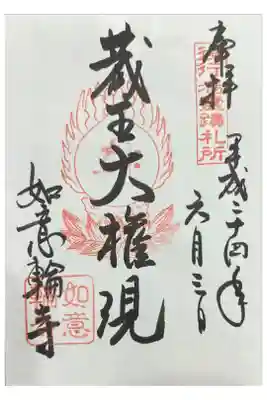 奉拝
役行者霊蹟札所
平成二十四年
六月三日
蔵王大権現
如意輪寺
如意